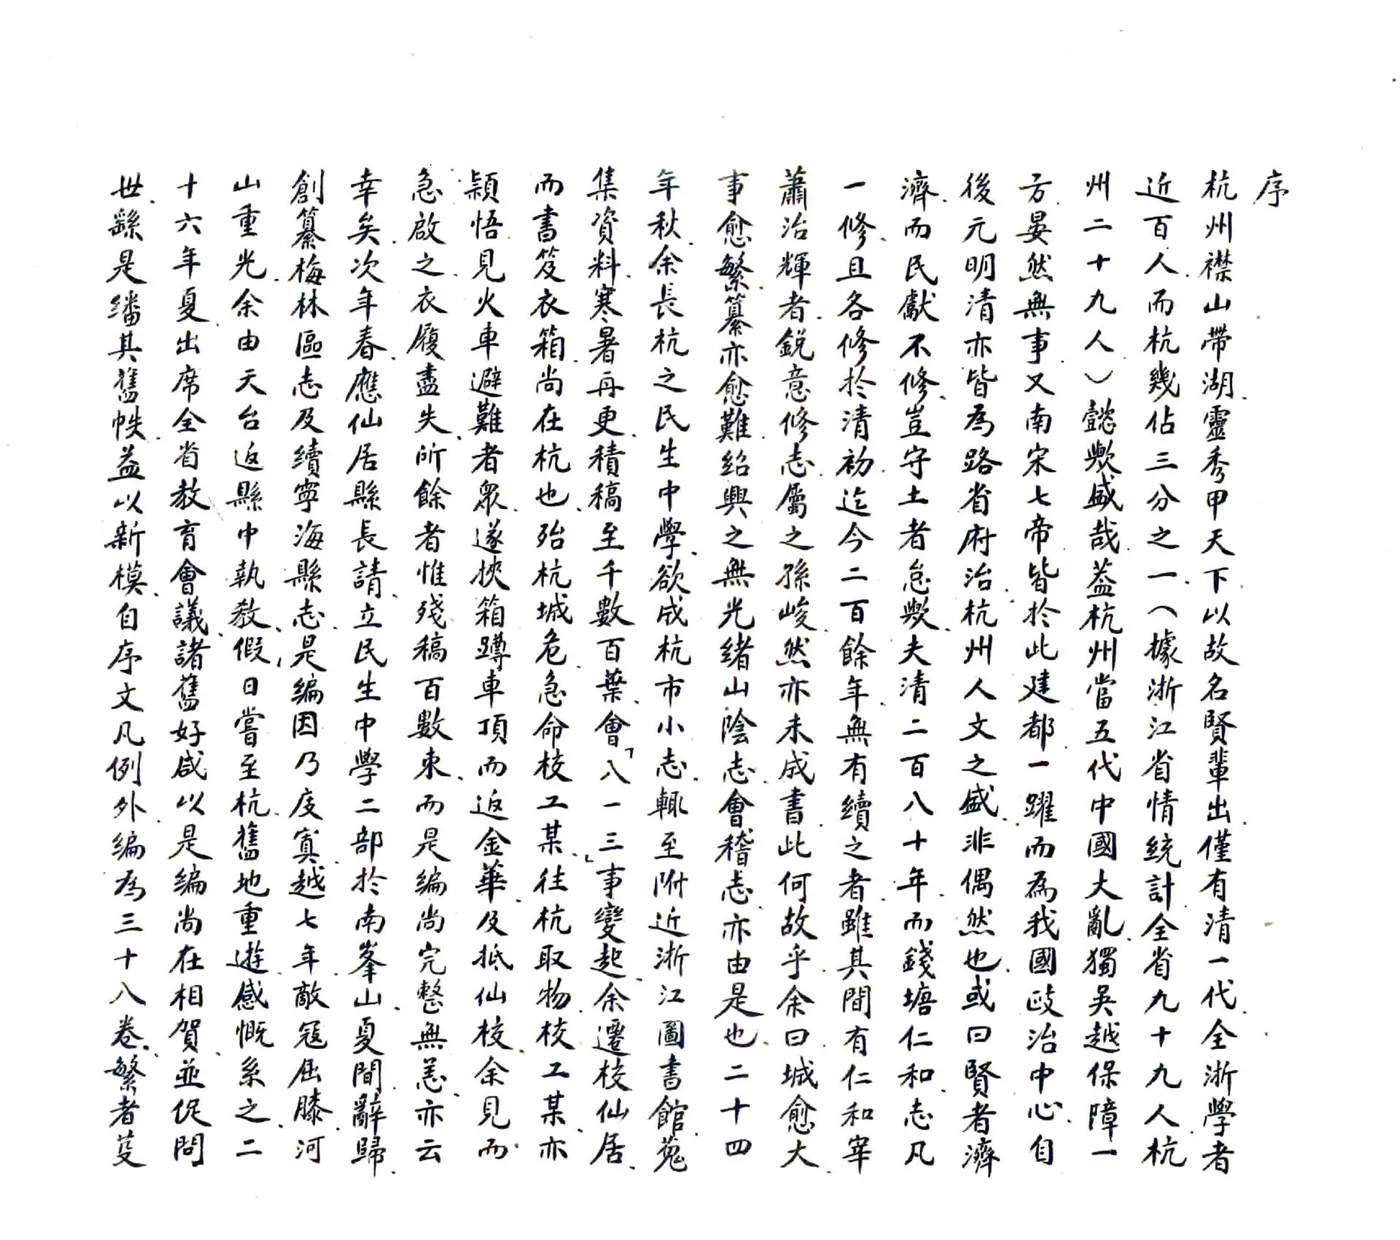 序
杭州襟山帶湖靈秀甲天下以故名賢輩出僅有清一代全浙學者
近百人而杭幾佔三分之一（據浙江省情統計全省九十九人杭
州二十九人）懿歟盛哉蓋杭州當五代中國大亂獨吳越保障一
方晏然無事又南宋七帝皆於此建都一躍而為我國政治中心自
後元明清亦皆為路省府治杭州人文之盛非偶然也或曰賢者濟
濟而民獻不修豈守土者怠歟夫清二百八十年而錢塘仁和志凡
一修且各修於清初迄今二百餘年無有續之者雖其間有仁和宰
蕭治輝者銳意修志屬之孫峻然亦未成書此何故乎余曰城愈大
事愈繁纂亦愈難紹興之無光緒山陰志會稽志亦由是也二十四
年秋余長杭之民生中學欲成杭市小志輒至附近浙江圖書館蒐
集資料寒暑再更積稿至千數百葉會「八一三」事變起余遷校仙居
而書笈衣箱尚在杭也殆杭城危急命校工某往杭取物校工某亦
穎悟見火車避難者眾遂挾箱蹲車頂而返金華及抵仙校余見而
急啟之衣履盡失所餘者惟殘稿百數束而是編尚完整無恙亦云
幸矣次年春應仙居縣長請立民生中學二部於南峯山夏間辭歸
創纂梅林區志及續寧海縣志是編因乃庋寘越七年敵寇屈膝河
山重光余由天台返縣中執教假日嘗至杭舊地重遊感慨系之二
十六年夏出席全省教育會議諸舊好咸以是編尚在相賀並促問
世繇是繙其舊帙益以新模自序文凡例外編為三十八卷繁者芟